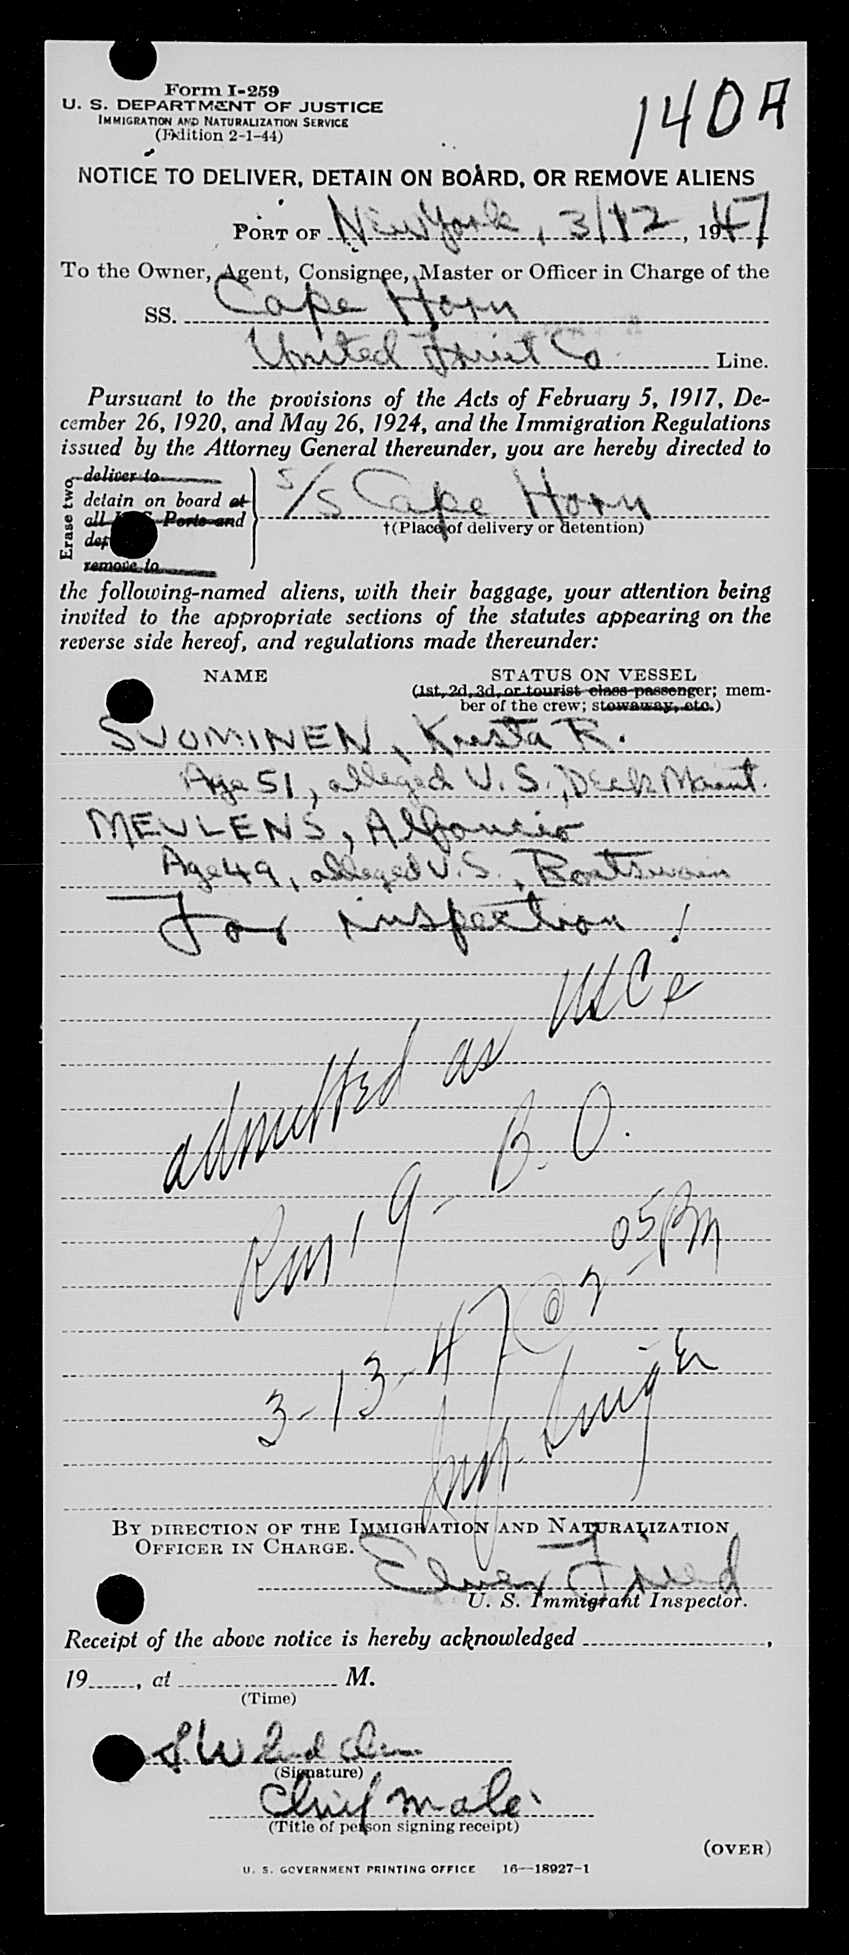 140A
Form I-259
U. S. DEPARTMENT OF JUSTICE
IMMIGRATION AND NATURALIZATION SERVICE
(Edition 2-1-44)
NOTICE TO DELIVER, DETAIN ON BOARD, OR REMOVE ALIENS
PORT OF New York, 3/12, 1947
To the Owner, Agent, Consignee, Master or Officer in Charge of the
SS. Cape Horn
United Fruit Co. Line.
Pursuant to the provisions of the Acts of February 5, 1917, De-
cember 26, 1920, and May 26, 1924, and the Immigration Regulations
issued by the Attorney General thereunder, you are hereby directed to
Erase two
deliver to
detain on board at
all U.S. Ports and
dep
remove to
S/S Cape Horn
†(Place of delivery or detention)
the following-named aliens, with their baggage, your attention being
invited to the appropriate sections of the statutes appearing on the
reverse side hereof, and regulations made thereunder:
NAME
STATUS ON VESSEL
(1st, 2d, 3d, or tourist class passenger; mem-
ber of the crew; stowaway, etc.)
SUOMINEN, Kusta R.
Age 51, alleged U. S., Deck Maint.
MEULENS,
Age 49, alleged U.S., Boatswain
For inspection!
admitted as USC's
Rm 19 - B. O.
3-13-47 @ 2 05 PM
BY DIRECTION OF THE IMMIGRATION AND NATURALIZATION
OFFICER IN CHARGE.
Elmer
U. S. Immigrant Inspector.
Receipt of the above notice is hereby acknowledged ,
19 , at M.
(Time)
(Signature)
Chief mate
(Title of person signing receipt)
(OVER)
U. S. GOVERNMENT PRINTING OFFICE 16—18927-1